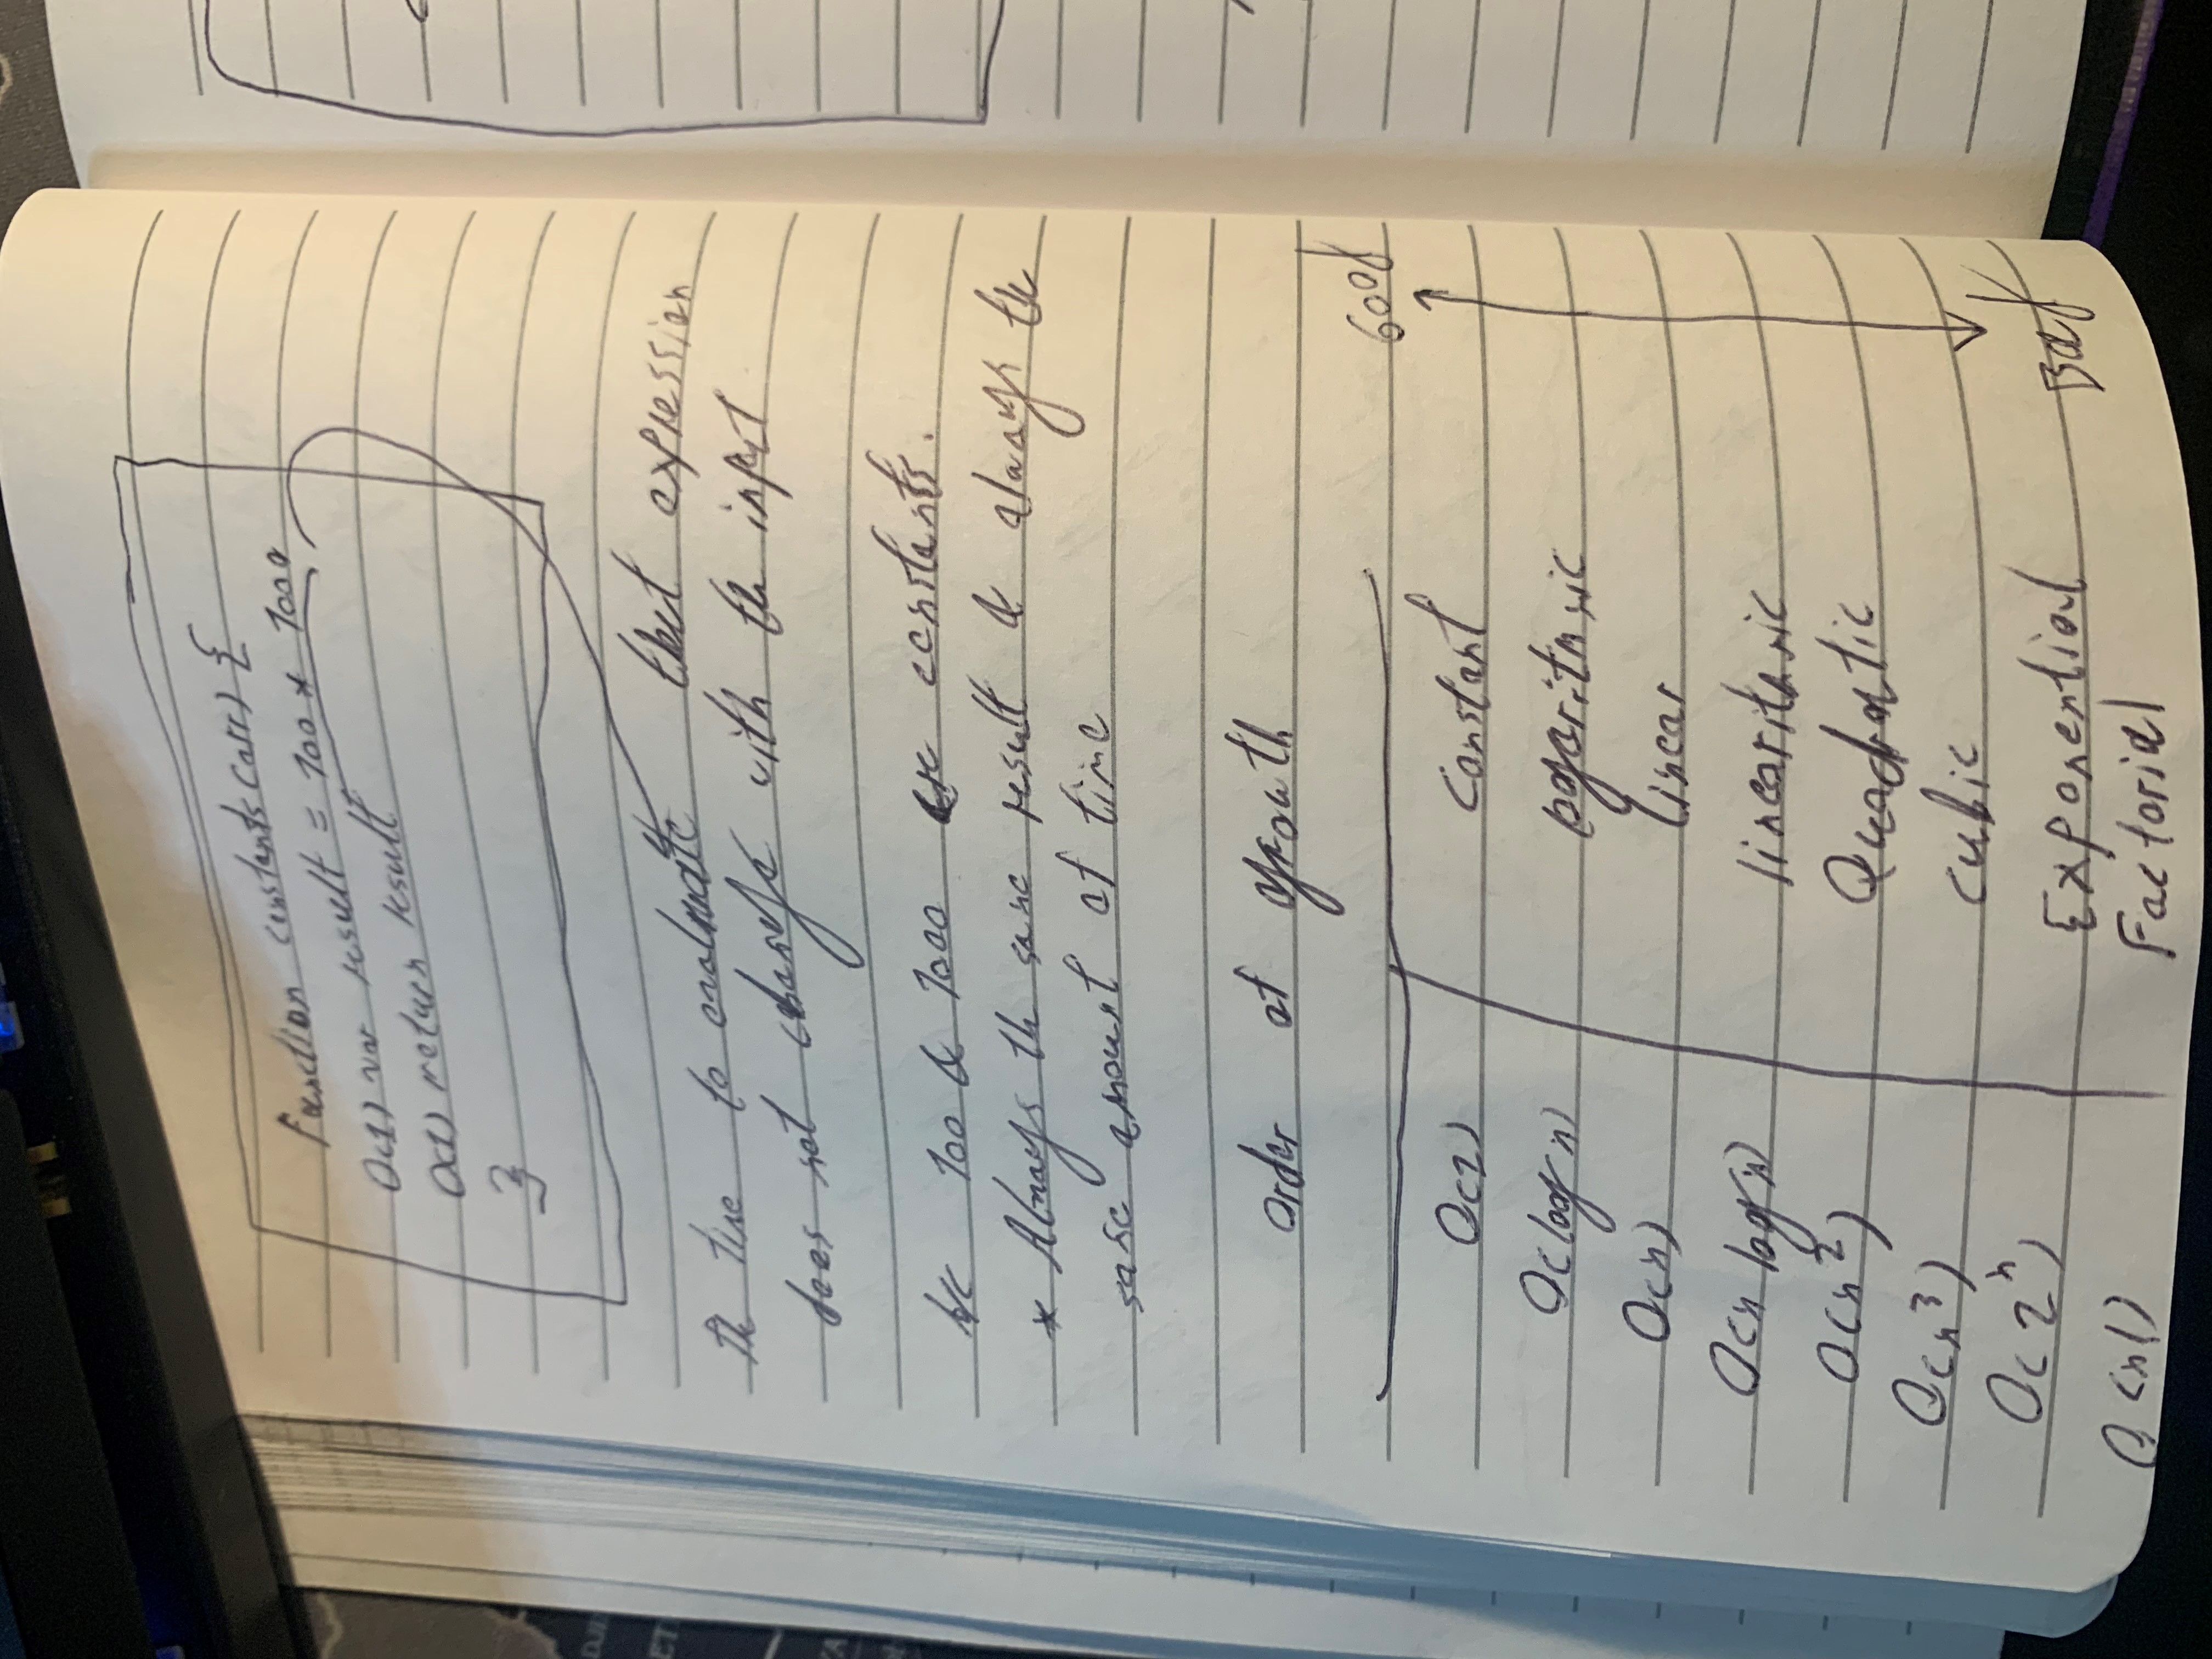 Function constants(arr) {
O(1) var result = 100 * 1000
O(1) return result
}
The time to evaluate that expression
does not change with the input
bc 100 & 1000 are constants.
* Always the same result & always the
same amount of time
Order of growth
Good
O(1) Constant
O(log n) logarithmic
O(n) Linear
O(n log n) linearithmic
O(n²) Quadratic
O(n³) cubic
O(2ⁿ) Exponential
Bad
O(n!) Factorial